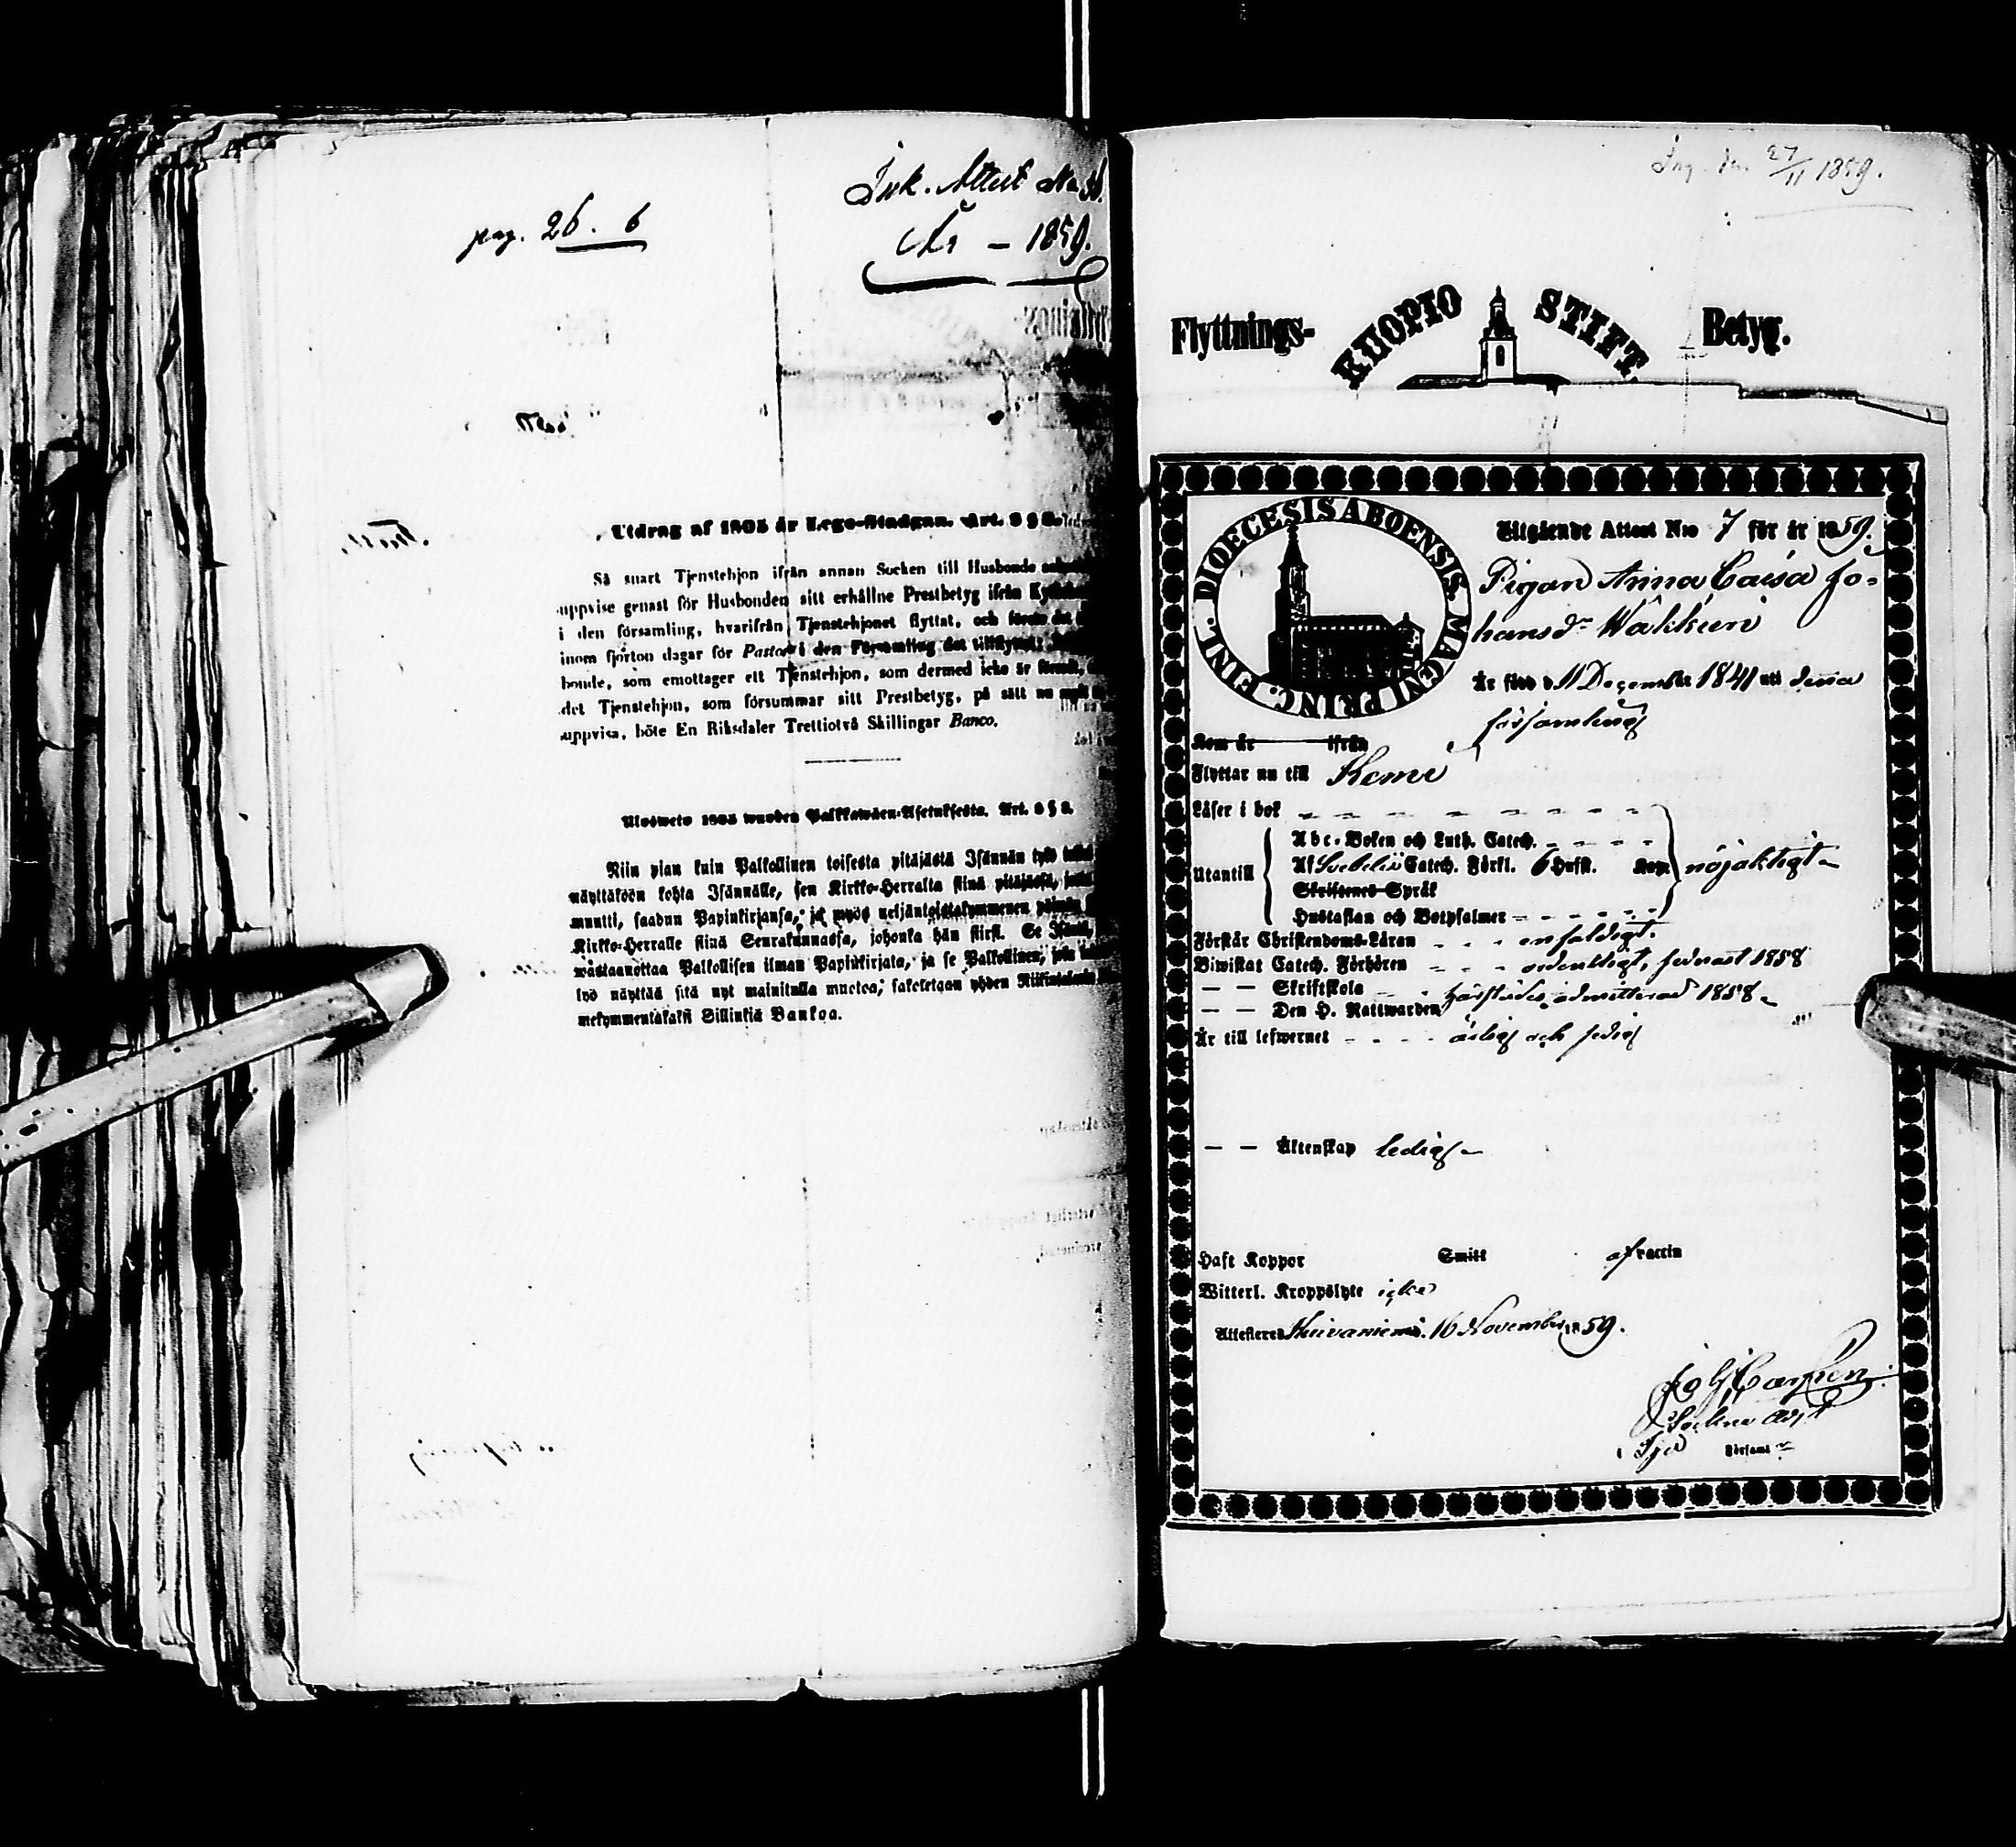 pag. 26. 6
Ink. Attest No
År - 1859.
Utdrag af 1805 år Lego-Stadgan. Art. 8 §
Så snart Tjenstehjon ifrån annan Socken till Husbonde
uppvise genast för Husbonden sitt erhållne Prestbetyg ifrån
i den församling, hvarifrån Tjenstehjonet flyttat, och
inom fjorton dagar för Pastor i den Församling det
bonde, som emottager ett Tjenstehjon, som dermed icke är
det Tjenstehjon, som försummar sitt Prestbetyg, på sätt nu
uppvisa, böte En Riksdaler Trettiotvå Skillingar Banco.
Ulosweto 1805 wuoden Palkkawäen-Asetuksesta. Art. 8 § 8.
Niin pian kuin Palkollinen toisesta pitäjästä Isännän työ
näyttäköön kohta Isännälle, sen Kirkko-Herralta siinä pitäjässä,
muutti, saadun Papinkirjansa, ja myös neljäntoistakymmenen päiwän
Kirkko-Herralle siinä Seurakunnassa, johonka hän siirsi. Se
wastaanottaa Palkollisen ilman Papinkirjata, ja se Palkollinen,
lyö näyttää sitä nyt mainitulla muotoa, sakotetaan yhden
mekymmentäkaksi Sillinkiä Bankoa.
Ing. den 27/11 1859.
Flyttnings- KUOPIO STIFT. Betyg.
DIOECESIS ABOENSIS. MAGNI PRINC. FINL.
Utgående Attest N:ro 7 för år 1859.
Pigan Anna Caisa Jo-
hansdr
Är född d. 11 December 1841 uti denna
församling
Kom år ifrån
Flyttar nu till Kemi
Läser i bok
Utantill
Abc-Boken och Luth. Catech.
Af Svebelii Catech. Förkl. 6 Hufst. nöjaktigt
Skriftenes Språk
Hustaflan och Botpsalmer
Förstår Christendoms-Läran enfaldigt.
Biwistat Catech. Förhören ordentligt, sednast 1858
— — Skriftskola
— — Den H. Nattwarden härstädes admitterad 1858
Är till lefwernet ärlig och sedig
— — Äktenskap ledig
Haft Koppor Smitt af vaccin
Witterl. Kroppslyte icke
Attesteras Kuivaniemi. 16 November 1859.
Församl